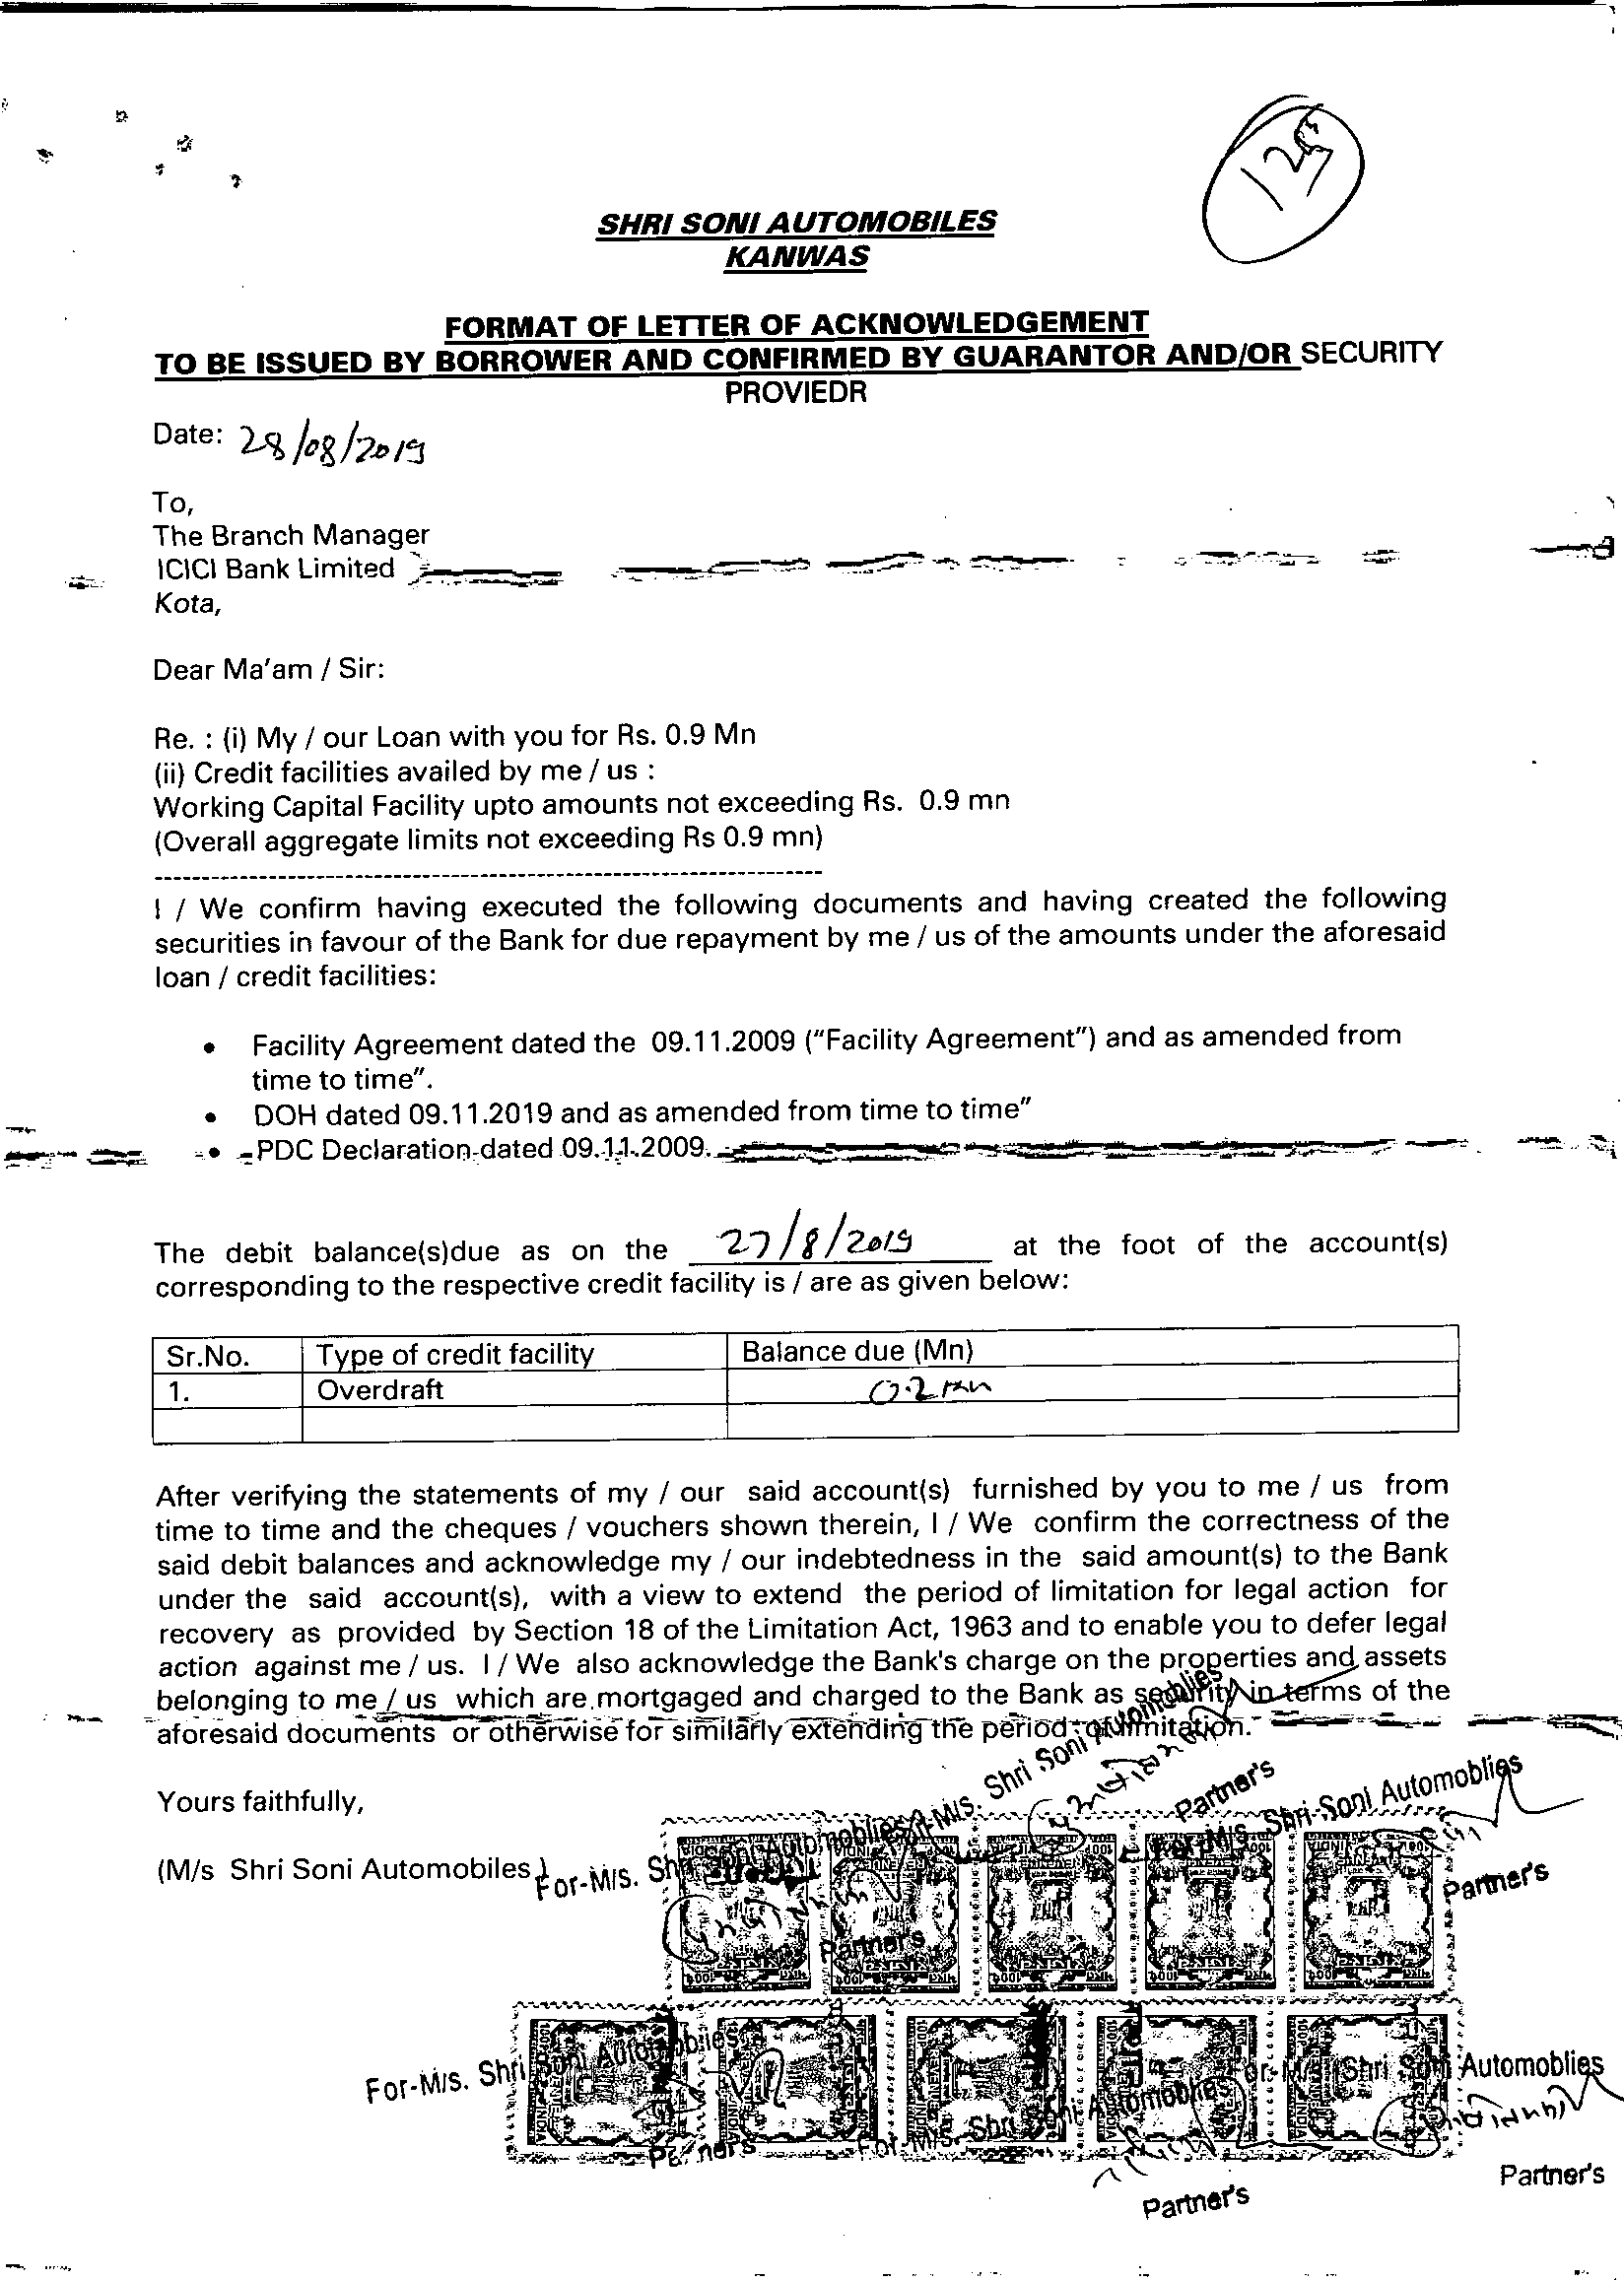 125
SHRI SONI AUTOMOBILES
KANWAS
FORMAT OF LETTER OF ACKNOWLEDGEMENT
TO BE ISSUED BY BORROWER AND CONFIRMED BY GUARANTOR AND/OR SECURITY
PROVIEDR
Date: 28/08/2019
To,
The Branch Manager
ICICI Bank Limited
Kota,
Dear Ma'am / Sir:
Re. : (i) My / our Loan with you for Rs. 0.9 Mn
(ii) Credit facilities availed by me / us :
Working Capital Facility upto amounts not exceeding Rs. 0.9 mn
(Overall aggregate limits not exceeding Rs 0.9 mn)
I / We confirm having executed the following documents and having created the following
securities in favour of the Bank for due repayment by me / us of the amounts under the aforesaid
loan / credit facilities:
• Facility Agreement dated the 09.11.2009 ("Facility Agreement") and as amended from
time to time".
• DOH dated 09.11.2019 and as amended from time to time"
• PDC Declaration dated 09.11.2009.
The debit balance(s)due as on the 27/8/2019 at the foot of the account(s)
corresponding to the respective credit facility is / are as given below:
Sr.No. Type of credit facility Balance due (Mn)
1. Overdraft 0.2 mn
After verifying the statements of my / our said account(s) furnished by you to me / us from
time to time and the cheques / vouchers shown therein, I / We confirm the correctness of the
said debit balances and acknowledge my / our indebtedness in the said amount(s) to the Bank
under the said account(s), with a view to extend the period of limitation for legal action for
recovery as provided by Section 18 of the Limitation Act, 1963 and to enable you to defer legal
action against me / us. I / We also acknowledge the Bank's charge on the properties and assets
belonging to me / us which are mortgaged and charged to the Bank as security in terms of the
aforesaid documents or otherwise for similarly extending the period of limitation.
Yours faithfully,
For-M/s. Shri Soni Automoblies
Partner's
For-M/s. Shri Soni Automoblies
Partner's
(M/s Shri Soni Automobiles)
For-M/s. Shri Soni Automoblies
Partner's
For-M/s. Shri Soni Automoblies
Partner's
For-M/s. Shri Soni Automoblies
Partner's
For-M/s. Shri Soni Automoblies
Partner's